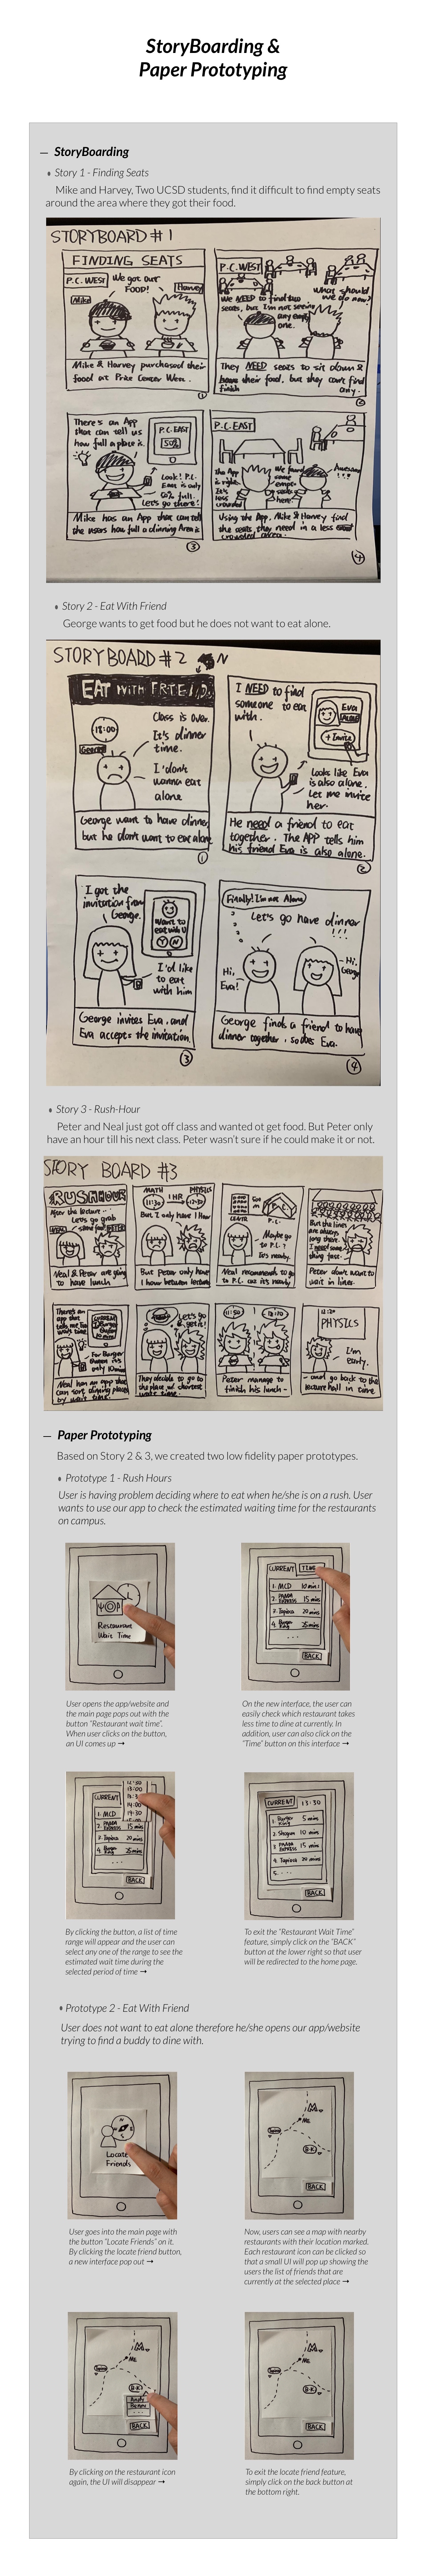 StoryBoarding &
Paper Prototyping
— StoryBoarding
Story 1 - Finding Seats
Mike and Harvey, Two UCSD students, find it difficult to find empty seats
around the area where they got their food.
STORYBOARD #1
FINDING SEATS
P.C. WEST
We got our
FOOD!
Mike
Harvey
Mike & Harvey purchased their
food at Price Center West.
①
P.C. WEST
What should
we do now?
We NEED to find two
seats, but I'm not seeing
any empty
one.
They NEED seats to sit down &
finish their food, but they can't find
any.
②
There's an App
that can tell us
how full a place is.
P.C. EAST
50%
Look! P.C.
East is only
50% full.
Let's go there!
Mike has an App that can tell
the users how full a dinning Area is
③
P.C. EAST
The App
is right.
It's
less
crowded
here!
We found
some
empty
seats!
Awesome
Using the App, Mike & Harvey find
the seats they need in a less
crowded area.
④
Story 2 - Eat With Friend
George wants to get food but he does not want to eat alone.
STORYBOARD #2
EAT WITH FRIEND
18:00
George
Class is over.
It's dinner
time.
I don't
wanna eat
alone
George want to have dinner
but he don't want to eat alone
①
I NEED to find
someone to eat
with.
Eva
ALONE
+ Invite
Looks like Eva
is also alone.
Let me invite
her.
He need a friend to eat
together. The APP tells him
his friend Eva is also alone.
②
I got the
invitation from
George.
Want to
eat with U
Y N
I'd like
to eat
with him
George invites Eva and
Eva accepts the invitation.
③
Finally! I'm not Alone!
Let's go have dinner
!!!
Hi,
Eva!
Hi,
George
George finds a friend to have
dinner together, so does Eva.
④
Story 3 - Rush-Hour
Peter and Neal just got off class and wanted ot get food. But Peter only
have an hour till his next class. Peter wasn't sure if he could make it or not.
STORY BOARD #3
RUSH HOUR
After the lecture
Let's go grab
some food
Neal & Peter are going
to have lunch.
MATH
11:30
1 HR
PHYSICS
12:30
But I only have 1 Hour
But Peter only have
1 hour between lectures
P.C.
Maybe go
to P.C.
It's nearby.
Neal recommends to go
to P.C. cuz it's nearby
But the lines
are always
long there.
I need some
thing fast.
Peter don't want to
wait in lines.
There's an
app that
tells me the
wait time.
For Burger
Neal has an app that
can sort dinning places
by wait time.
Let's go
get it!
They decide to go to
the place w/ shortest
wait time.
11:50
12:20
Peter manage to
finish his lunch -
PHYSICS
I'm
early.
- and go back to the
lecture hall in time
— Paper Prototyping
Based on Story 2 & 3, we created two low fidelity paper prototypes.
Prototype 1 - Rush Hours
User is having problem deciding where to eat when he/she is on a rush. User
wants to use our app to check the estimated waiting time for the restaurants
on campus.
Restaurant
Wait Time
CURRENT TIME
1. MCD 10 min
2. PANDA EXPRESS 15 min
3. Tapioca 20 mins
4. Burger King 25 mins
...
BACK
User opens the app/website and
the main page pops out with the
button "Restaurant wait time".
When user clicks on the button,
an UI comes up →
On the new interface, the user can
easily check which restaurant takes
less time to dine at currently. In
addition, user can also click on the
"Time" button on this interface →
12:30
13:00
13:30
14:00
14:30
CURRENT
1. MCD
2. PANDA EXPRESS 15 mins
3. Tapioca 20 mins
4. Burger King 25 mins
...
BACK
CURRENT 13:30
1. Burger King 5 min
2. Shogun 10 min
3. PANDA EXPRESS 15 min
4. Tapioca 20 min
5. ...
BACK
By clicking the button, a list of time
range will appear and the user can
select any one of the range to see the
estimated wait time during the
selected period of time →
To exit the "Restaurant Wait Time"
feature, simply click on the "BACK"
button at the lower right so that user
will be redirected to the home page.
Prototype 2 - Eat With Friend
User does not want to eat alone therefore he/she opens our app/website
trying to find a buddy to dine with.
Locate
Friends
ME
B.K
BACK
User goes into the main page with
the button "Locate Friends" on it.
By clicking the locate friend button,
a new interface pop out →
Now, users can see a map with nearby
restaurants with their location marked.
Each restaurant icon can be clicked so
that a small UI will pop up showing the
users the list of friends that are
currently at the selected place →
ME
B.K
Andy
BACK
ME
B.K
BACK
By clicking on the restaurant icon
again, the UI will disappear →
To exit the locate friend feature,
simply click on the back button at
the bottom right.